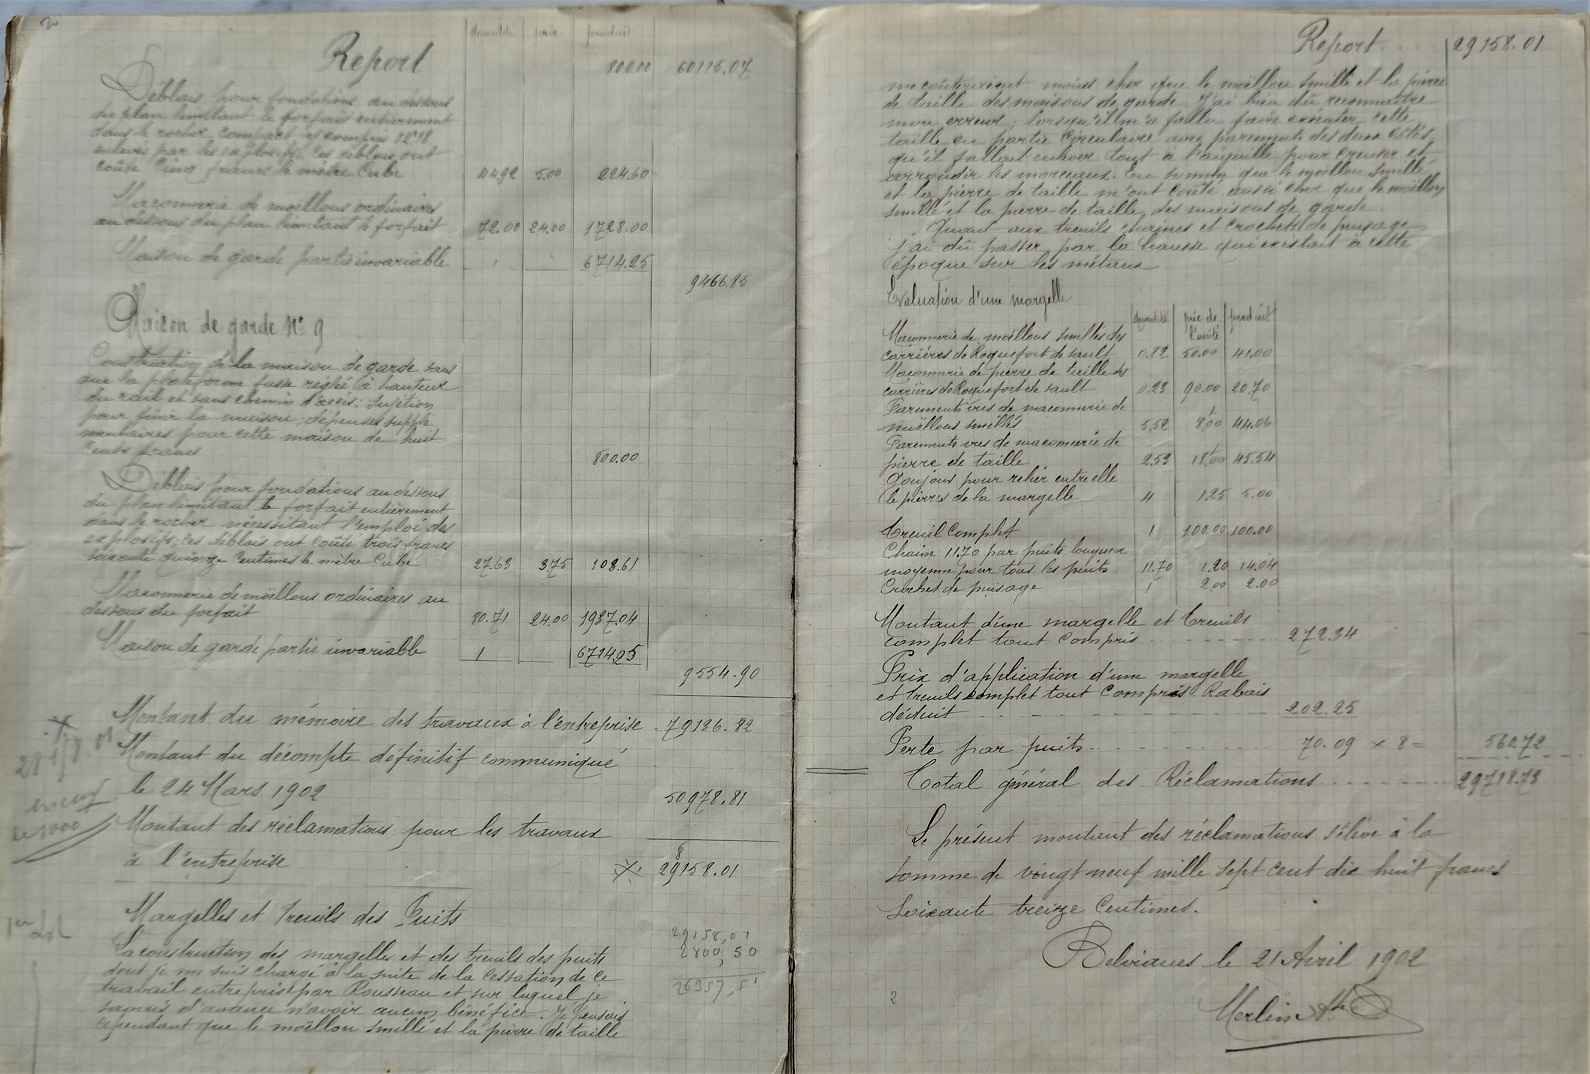 2
quantité prix produit
Report 800.00 60115.07
Déblais pour fondations au dessous
du plan limitant le forfait entièrement
dans le rocher compact et compris
enlevés par les explosifs. Ces déblais ont
coûté Cinq francs le mètre Cube 44.92 5.00 224.60
Maconnerie de moellons ordinaires
au dessous du plan limitant le forfait 72.00 24.00 1728.00
Maison de garde partie invariable 1 6714.25
9466.85
Maison de garde N° 9
Construction de la maison de garde sans
que la plateforme fasse réglée à hauteur
du rail et sans chemin d'accès; Sujétion
pour finir la maison; dépenses supplé
mentaires pour cette maison de huit
Cents francs 800.00
Déblais pour fondations au dessous
du plan limitant le forfait entièrement
dans le rocher nécessitant l'emploi des
explosifs; ces déblais ont coûté trois francs
soixante quinze Centimes le mètre Cube 27.63 3.75 108.61
Maconnerie de moëllons ordinaires au
dessous du forfait 80.71 24.00 1937.04
Maison de garde partie invariable 1 6714.25
9554.90
Montant du mémoire des travaux à l'entreprise 79136.82
Montant du décompte définitif communiqué
le 24 Mars 1902 50978.81
Montant des réclamations pour les travaux
à l'entreprise 29158.01
8
Margelles et treuils des Puits
29158,01
2800,50
26357,51
La construction des margelles et des treuils des puits
dont je me suis chargé à la suite de la cessation de ce
travail entrepris par Rousseau et sur lequel je
savais d'avance n'avoir aucun bénéfice. Je pensais
cependant que le moëllon smillé et la pierre de taille
Report 29158.01
me coûteraient moins cher que le moëllon smillé et la pierre
de taille des maisons de garde. J'ai bien dû reconnaître
mon erreur; lorsqu'il m'a fallu faire exécuter cette
taille en partie Circulaire avec parements des deux cotés,
qu'il fallait enlever tout à l'aiguille pour creuser et
arrondir les morceaux. En somme que le moëllon smillé
et la pierre de taille m'ont coûté aussi cher que le moëllon
smillé et la pierre de taille des maisons de garde.
Quant aux treuils chaines et crochets de puisage
j'ai dû passer par la hausse qui existait à cette
époque sur les métaux
Evaluation d'une margelle
quantité prix de l'unité produit
Maconnerie de moëllons smillés des
carrières de Roquefort de sault 0.82 50.00 41.00
Maconnerie de pierre de taille des
carrières de Roquefort de sault 0.23 90.00 20.70
Parements vus de maconnerie de
moëllons smillés 5.52 8.00 44.06
Parements vus de maconnerie de
pierre de taille 2.53 18.00 45.54
Goujons pour relier entre elle
le pierres de la margelle 4 1.25 5.00
Treuil Complet 1 100.00 100.00
Chaine 11.70 par puits longueur
moyenne pour tous les puits 11.70 1.20 14.04
Crochet de puisage 1 2.00 2.00
Montant d'une margelle et treuils
complet tout compris 272.34
Prix d'application d'une margelle
et treuils complet tout compris Rabais
déduit 202.25
Perte par puits 70.09 x 8 = 560.72
Total général des Réclamations 29718.73
Le présent montant des réclamations s'élève à la
somme de vingt neuf mille sept cent dix huit francs
soixante treize Centimes.
Belvianes le 21 Avril 1902
2
Merlin